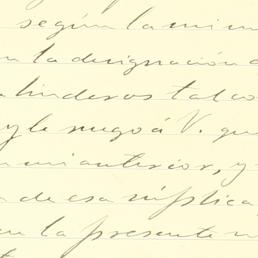 según la mi
la designación
linderos tal co
y le ruego á V. que
mi anterior, y
de esa súplica
en la presente